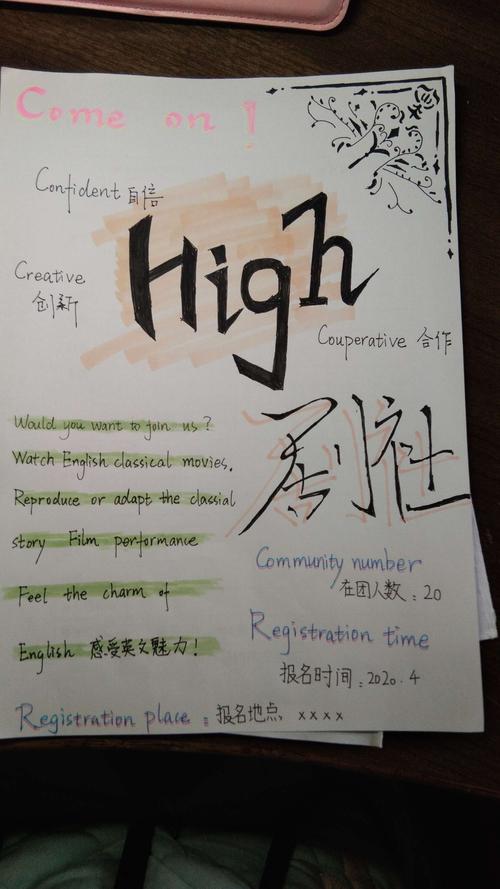 Come on!
Confident 自信
High
Creative
创新
Couperative 合作
剧社
Would you want to join us?
Watch English classical movies.
Reproduce or adapt the classial
story Film performance
Feel the charm of
English 感受英文魅力!
Community number
在团人数:20
Registration time
报名时间:2020.4
Registration place:报名地点 xxxx